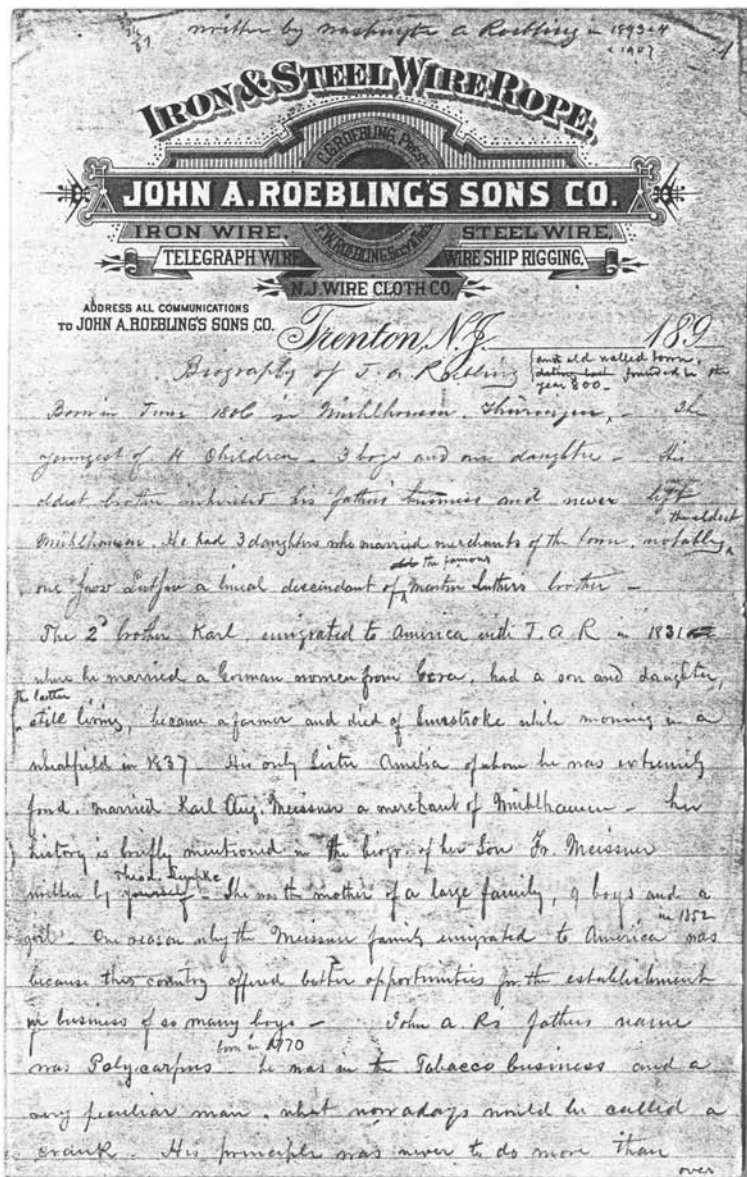 written by Washington A Roebling in 1893-4
& 1907
1
IRON & STEEL WIRE ROPE,
C.G. ROEBLING, Prest.
JOHN A. ROEBLING'S SONS CO.
F.W. ROEBLING, Secy & Treas.
IRON WIRE. STEEL WIRE.
TELEGRAPH WIRE WIRE SHIP RIGGING.
N.J. WIRE CLOTH CO.
ADDRESS ALL COMMUNICATIONS
TO JOHN A. ROEBLING'S SONS CO.
Trenton, N.J. 189
Biography of J. A. Roebling
old walled town,
dating back founded in the
year 800-
Born in June 1806 in Muhlhausen, Thuringen, - The
youngest of 4 Children - 3 boys and one daughter - His
oldest brother inherited his fathers business and never left
the oldest
Muhlhausen. He had 3 daughters who married merchants of the town, notably
the famous
one a lineal descendant of Martin Luthers brother -
The 2d brother Karl, emigrated to America with J. A. R in 1831
where he married a German women from Gera, had a son and daughter,
the latter
still living, became a farmer and died of Sunstroke while mowing in a
wheatfield in 1837 - His only Sister Amelia of whom he was extremely
fond, married Karl Aug. Meissner a merchant of Muhlhausen - her
history is briefly mentioned in the biogr. of her Son Fr. Meissner
written by yourself - She was the mother of a large family, 9 boys and a
in 1852
girl - One reason why the Meissner family emigrated to America was
because this country offered better opportunities for the establishment
in business of so many boys - John A. Rs fathers name
born in 1770
was Polycarpus he was in the Tobacco business and a
very peculiar man, what nowadays would be called a
crank. His principle was never to do more than
over